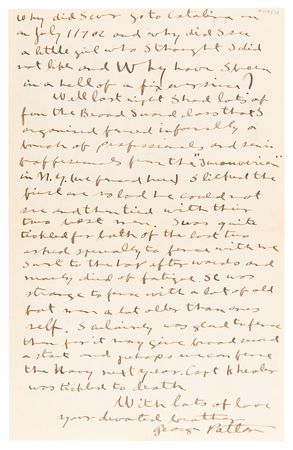 why did I ever go to Catalina on
a July 11702 and why did I see
a little girl who I thought I did
not like and Why have I been
in a hell of a fix ever since?
Well last night I had lots of
fun the Broad Sword class that I
organised fenced informally a
bunch of professionals and semi
professionals from the "Turnverein"
in N.Y. (we fenced here) I licked the
first one so bad he could not
see and then tied with their
two best men. I was quite
tickled for both of the last two
asked specially to fence with me
I went to the hop after wards and
nearly died of fatigue. It was
strange to fence with a lot of old
fat men a lot older than ones
self. I certainly was glad to fence
them for it may give broad sword
a start and perhaps we can fence
the Navy next year. Capt
was tickled to death.
With lots of love
your devoted
George Patton